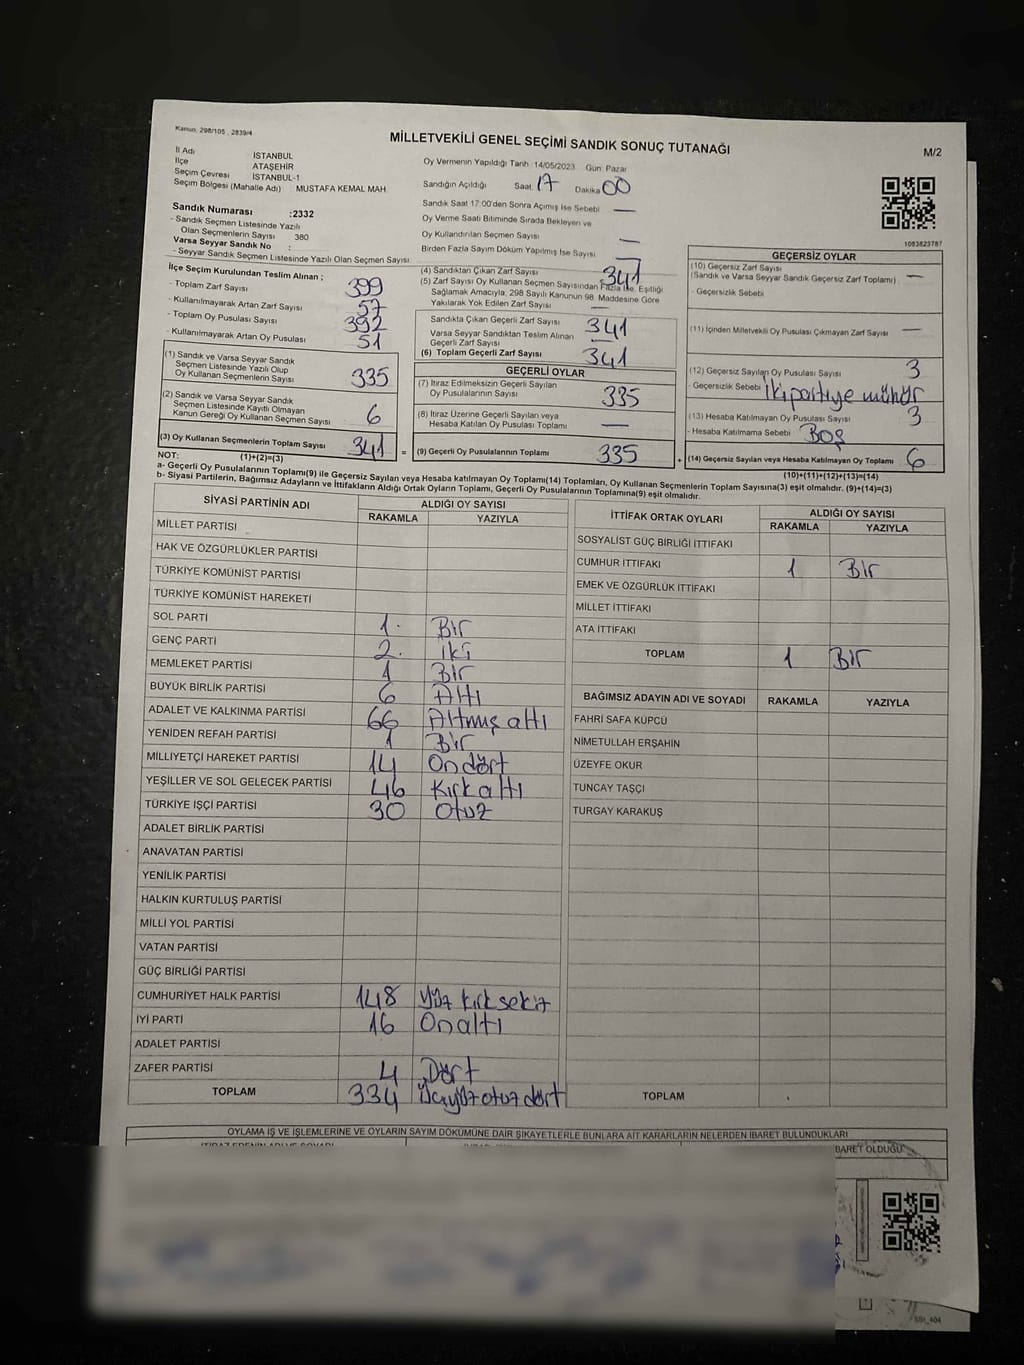 Kanun, 298/105 , 2839/4
MİLLETVEKİLİ GENEL SEÇİMİ SANDIK SONUÇ TUTANAĞI
M/2
İl Adı İSTANBUL
İlçe ATAŞEHİR
Seçim Çevresi İSTANBUL-1
Seçim Bölgesi (Mahalle Adı) MUSTAFA KEMAL MAH.
Oy Vermenin Yapıldığı Tarih :14/05/2023 Gün: Pazar
Sandığın Açıldığı Saat: 17 Dakika 00
Sandık Saat 17:00'den Sonra Açımış İse Sebebi —
Oy Verme Saati Bitiminde Sırada Bekleyen ve
Oy Kullandırılan Seçmen Sayısı —
Birden Fazla Sayım Döküm Yapılmış İse Sayısı —
1083823787
Sandık Numarası :2332
- Sandık Seçmen Listesinde Yazılı
Olan Seçmenlerin Sayısı 380
Varsa Seyyar Sandık No :
- Seyyar Sandık Seçmen Listesinde Yazılı Olan Seçmen Sayısı:
İlçe Seçim Kurulundan Teslim Alınan ;
- Toplam Zarf Sayısı 399
- Kullanılmayarak Artan Zarf Sayısı 57
- Toplam Oy Pusulası Sayısı 392
- Kullanılmayarak Artan Oy Pusulası 51
(1) Sandık ve Varsa Seyyar Sandık
Seçmen Listesinde Yazılı Olup
Oy Kullanan Seçmenlerin Sayısı 335
(2) Sandık ve Varsa Seyyar Sandık
Seçmen Listesinde Kayıtlı Olmayan
Kanun Gereği Oy Kullanan Seçmen Sayısı 6
(3) Oy Kullanan Seçmenlerin Toplam Sayısı 341 =
(4) Sandıktan Çıkan Zarf Sayısı 341
(5) Zarf Sayısı Oy Kullanan Seçmen Sayısından Fazla İse, Eşitliği
Sağlamak Amacıyla, 298 Sayılı Kanunun 98. Maddesine Göre
Yakılarak Yok Edilen Zarf Sayısı —
Sandıkta Çıkan Geçerli Zarf Sayısı 341
Varsa Seyyar Sandıktan Teslim Alınan
Geçerli Zarf Sayısı —
(6) Toplam Geçerli Zarf Sayısı 341
GEÇERLİ OYLAR
(7) İtiraz Edilmeksizin Geçerli Sayılan
Oy Pusulalarının Sayısı 335
(8) İtiraz Üzerine Geçerli Sayılan veya
Hesaba Katılan Oy Pusulası Toplamı —
(9) Geçerli Oy Pusulalarının Toplamı 335 +
GEÇERSİZ OYLAR
(10) Geçersiz Zarf Sayısı
(Sandık ve Varsa Seyyar Sandık Geçersiz Zarf Toplamı) : —
- Geçersizlik Sebebi
(11) İçinden Milletvekili Oy Pusulası Çıkmayan Zarf Sayısı —
(12) Geçersiz Sayılan Oy Pusulası Sayısı 3
- Geçersizlik Sebebi İki partiye mühür
(13) Hesaba Katılmayan Oy Pusulası Sayısı 3
- Hesaba Katılmama Sebebi BOŞ
(14) Geçersiz Sayılan veya Hesaba Katılmayan Oy Toplamı 6
NOT: (1)+(2)=(3) (10)+(11)+(12)+(13)=(14)
a- Geçerli Oy Pusulalarının Toplamı(9) ile Geçersiz Sayılan veya Hesaba katılmayan Oy Toplamı(14) Toplamları, Oy Kullanan Seçmenlerin Toplam Sayısına(3) eşit olmalıdır. (9)+(14)=(3)
b- Siyasi Partilerin, Bağımsız Adayların ve İttifakların Aldığı Ortak Oyların Toplamı, Geçerli Oy Pusulalarının Toplamına(9) eşit olmalıdır.
SİYASİ PARTİNİN ADI ALDIĞI OY SAYISI
RAKAMLA YAZIYLA
MİLLET PARTİSİ
HAK VE ÖZGÜRLÜKLER PARTİSİ
TÜRKİYE KOMÜNİST PARTİSİ
TÜRKİYE KOMÜNİST HAREKETİ
SOL PARTİ 1. Bir
GENÇ PARTİ 2. iki
MEMLEKET PARTİSİ 1 Bir
BÜYÜK BİRLİK PARTİSİ 6 Altı
ADALET VE KALKINMA PARTİSİ 66 Altmış altı
YENİDEN REFAH PARTİSİ 1 Bir
MİLLİYETÇİ HAREKET PARTİSİ 14 Ondört
YEŞİLLER VE SOL GELECEK PARTİSİ 46 Kırk altı
TÜRKİYE İŞÇİ PARTİSİ 30 Otuz
ADALET BİRLİK PARTİSİ
ANAVATAN PARTİSİ
YENİLİK PARTİSİ
HALKIN KURTULUŞ PARTİSİ
MİLLİ YOL PARTİSİ
VATAN PARTİSİ
GÜÇ BİRLİĞİ PARTİSİ
CUMHURİYET HALK PARTİSİ 148 Yüz kırk sekiz
İYİ PARTİ 16 Onaltı
ADALET PARTİSİ
ZAFER PARTİSİ 4 Dört
TOPLAM 334 Üçyüz otuz dört
İTTİFAK ORTAK OYLARI ALDIĞI OY SAYISI
RAKAMLA YAZIYLA
SOSYALİST GÜÇ BİRLİĞİ İTTİFAKI
CUMHUR İTTİFAKI 1 Bir
EMEK VE ÖZGÜRLÜK İTTİFAKI
MİLLET İTTİFAKI
ATA İTTİFAKI
TOPLAM 1 Bir
BAĞIMSIZ ADAYIN ADI VE SOYADI RAKAMLA YAZIYLA
FAHRİ SAFA KÜPCÜ
NİMETULLAH ERŞAHİN
ÜZEYFE OKUR
TUNCAY TAŞÇI
TURGAY KARAKUŞ
TOPLAM
OYLAMA İŞ VE İŞLEMLERİNE VE OYLARIN SAYIM DÖKÜMÜNE DAİR ŞİKAYETLERLE BUNLARA AİT KARARLARIN NELERDEN İBARET BULUNDUKLARI
BARET OLDUĞU